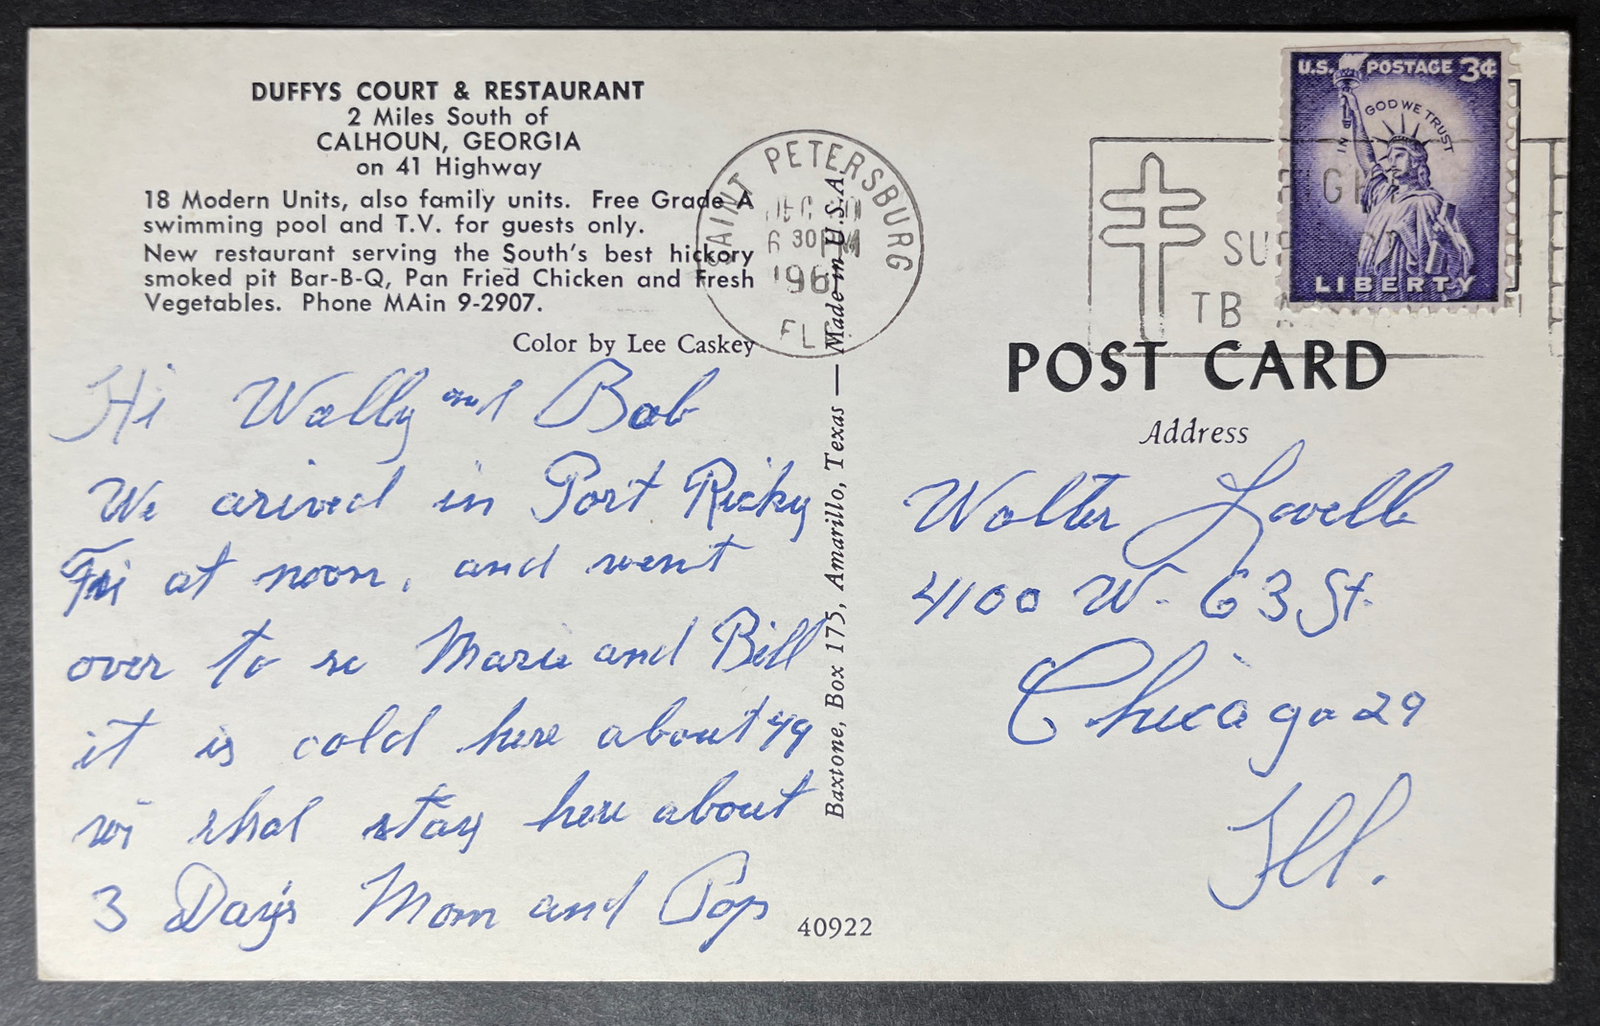 DUFFYS COURT & RESTAURANT
2 Miles South of
CALHOUN, GEORGIA
on 41 Highway
18 Modern Units, also family units. Free Grade A
swimming pool and T.V. for guests only.
New restaurant serving the South's best hickory
smoked pit Bar-B-Q, Pan Fried Chicken and Fresh
Vegetables. Phone MAin 9-2907.
Color by Lee Caskey
Hi Wally and Bob
We arived in Port Ricky
Fri at noon, and went
over to se Marie and Bill
it is cold here about 49
wi shal stay here about
3 Day's Mom and Pop
40922
Baxtone, Box 175, Amarillo, Texas — Made in U.S.A.
SAINT PETERSBURG
DEC
6 30 PM
FLA
TB
U.S. POSTAGE 3¢
IN GOD WE TRUST
LIBERTY
POST CARD
Address
Walter Lovell
4100 W. 63 St.
Chicago 29
Ill.